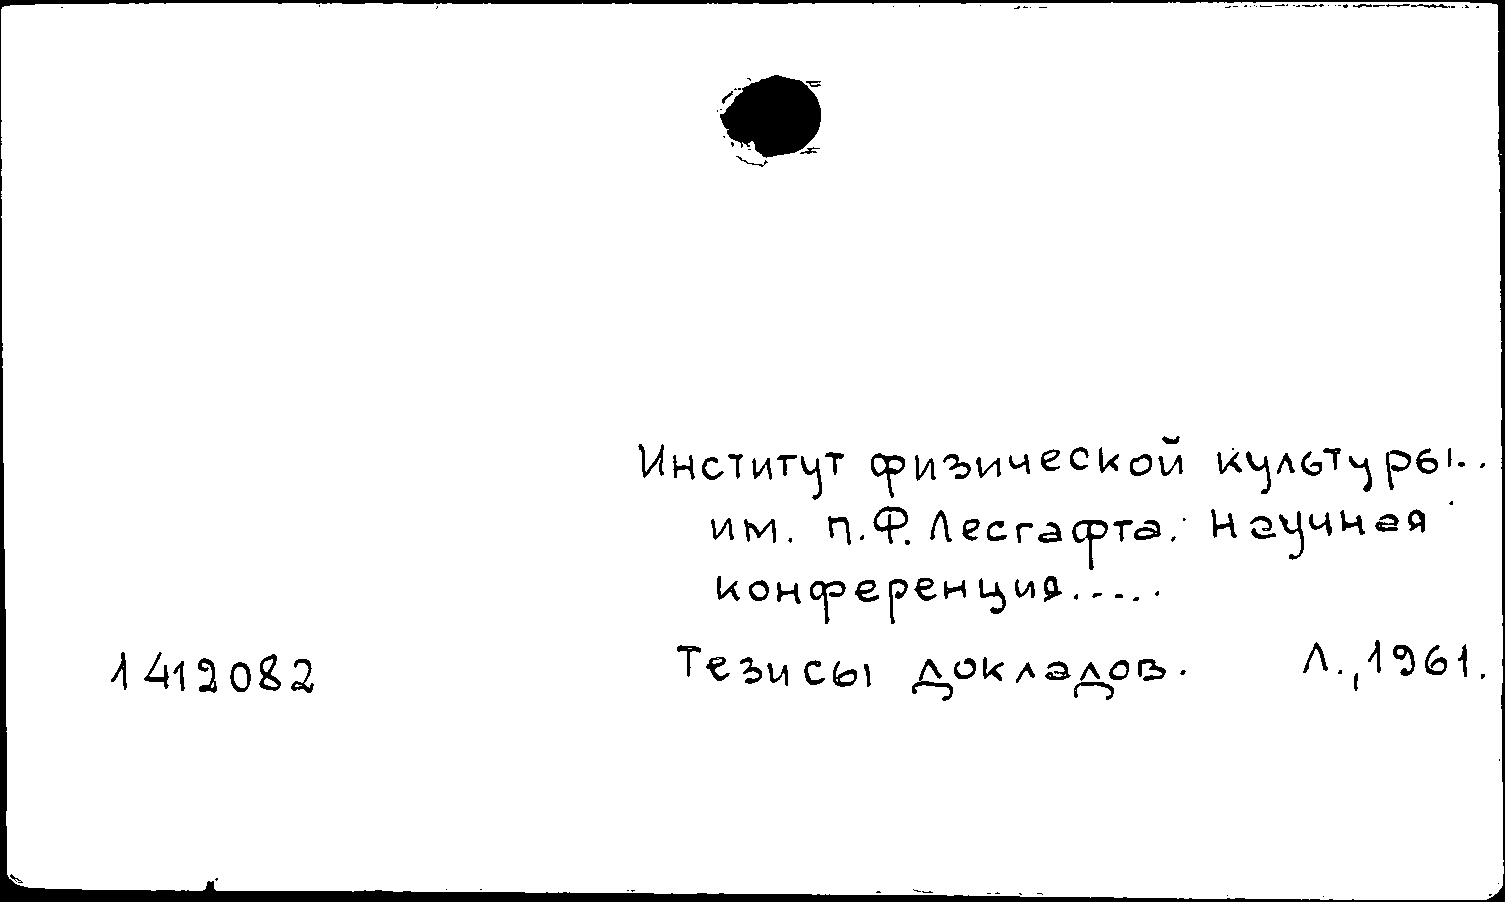 Институт физической культуры..
им. П.Ф. Лесгафта. Научная
конференция.....
1412082 Тезисы докладов. Л., 1961.